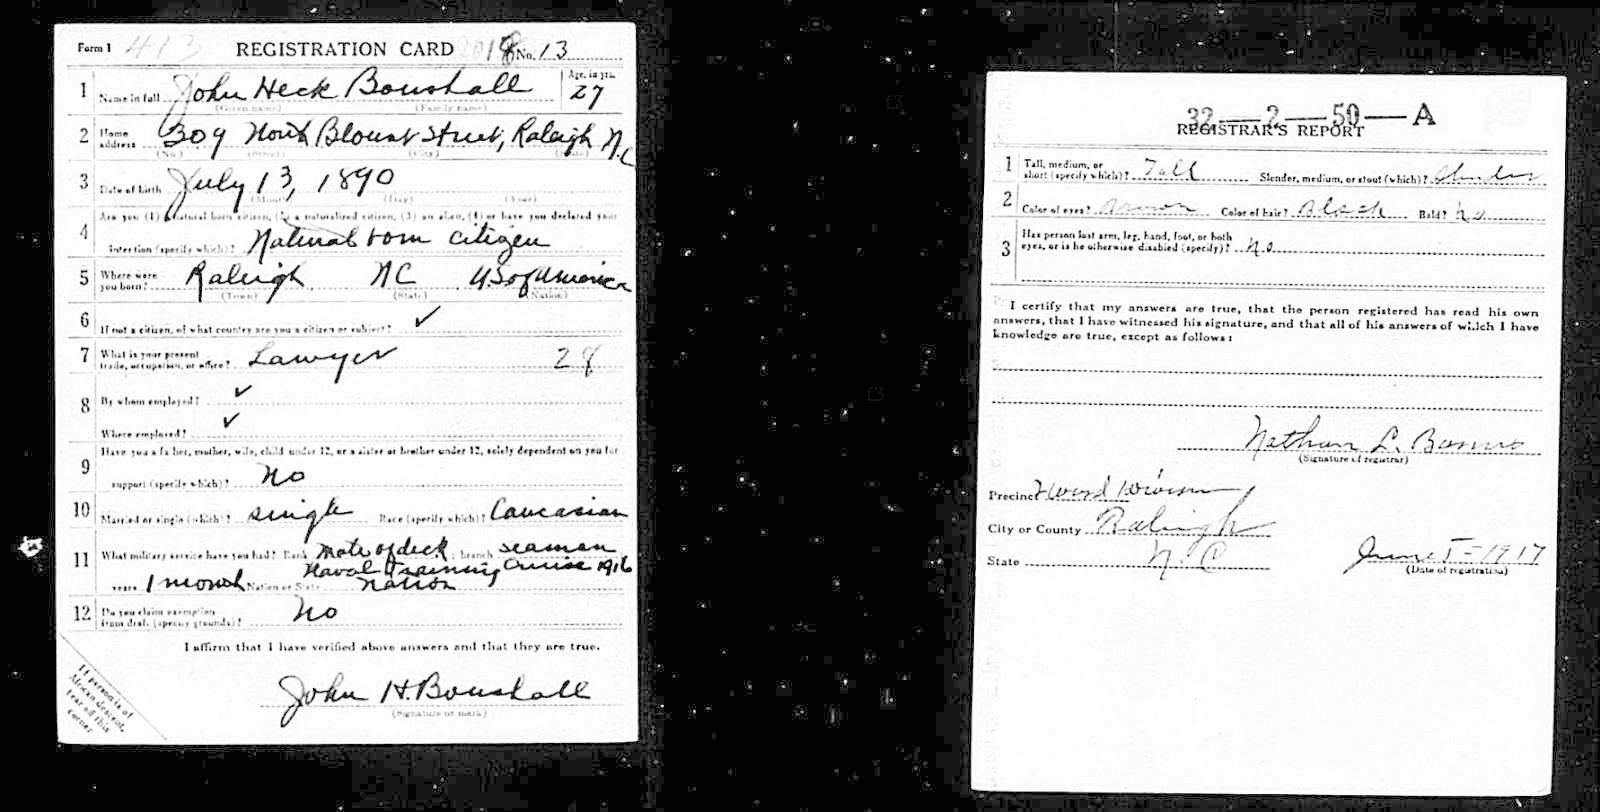 Form 1 413 REGISTRATION CARD No. 13
1 Name in full John Heck Boushall Age, in yrs. 27
(Given name) (Family name)
2 Home address 309 North Blount Street, Raleigh N.C
(No.) (Street) (City) (State)
3 Date of birth July 13, 1890
(Month) (Day) (Year)
4 Are you (1) a natural born citizen, (2) a naturalized citizen, (3) an alien, (4) or have you declared your
intention (specify which)? Natural born citizen
5 Where were you born? Raleigh NC US of America
(Town) (State) (Nation)
6 If not a citizen, of what country are you a citizen or subject? ✓
7 What is your present trade, occupation, or office? Lawyer 28
8 By whom employed? ✓
Where employed? ✓
9 Have you a father, mother, wife, child under 12, or a sister or brother under 12, solely dependent on you for
support (specify which)? No
10 Married or single (which)? single Race (specify which)? Caucasian
11 What military service have you had? Rank mate of deck; branch seaman
Naval Training Cruise 1916
years 1 month Nation or State Nation
12 Do you claim exemption from draft (specify grounds)? No
I affirm that I have verified above answers and that they are true.
John H. Boushall
(Signature or mark)
If person is of
African descent,
tear off this
corner
32—2—50—A
REGISTRAR'S REPORT
1 Tall, medium, or short (specify which)? Tall Slender, medium, or stout (which)? Slender
2 Color of eyes? Brown Color of hair? Black Bald? No
3 Has person lost arm, leg, hand, foot, or both
eyes, or is he otherwise disabled (specify)? No
I certify that my answers are true, that the person registered has read his own
answers, that I have witnessed his signature, and that all of his answers of which I have
knowledge are true, except as follows:
Nathan L.
(Signature of registrar)
Precinct
City or County Raleigh
State N.C
June 5-1917
(Date of registration)